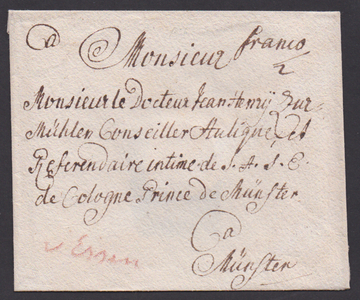 a
Monsieur franco
Monsieur le Docteur Jean Henrÿ Zur-
Mühlen Conseiller Aulique, et
Referendaire intime de S. A. S. E.
de Cologne Prince de Münster
a
Münster
v Essen